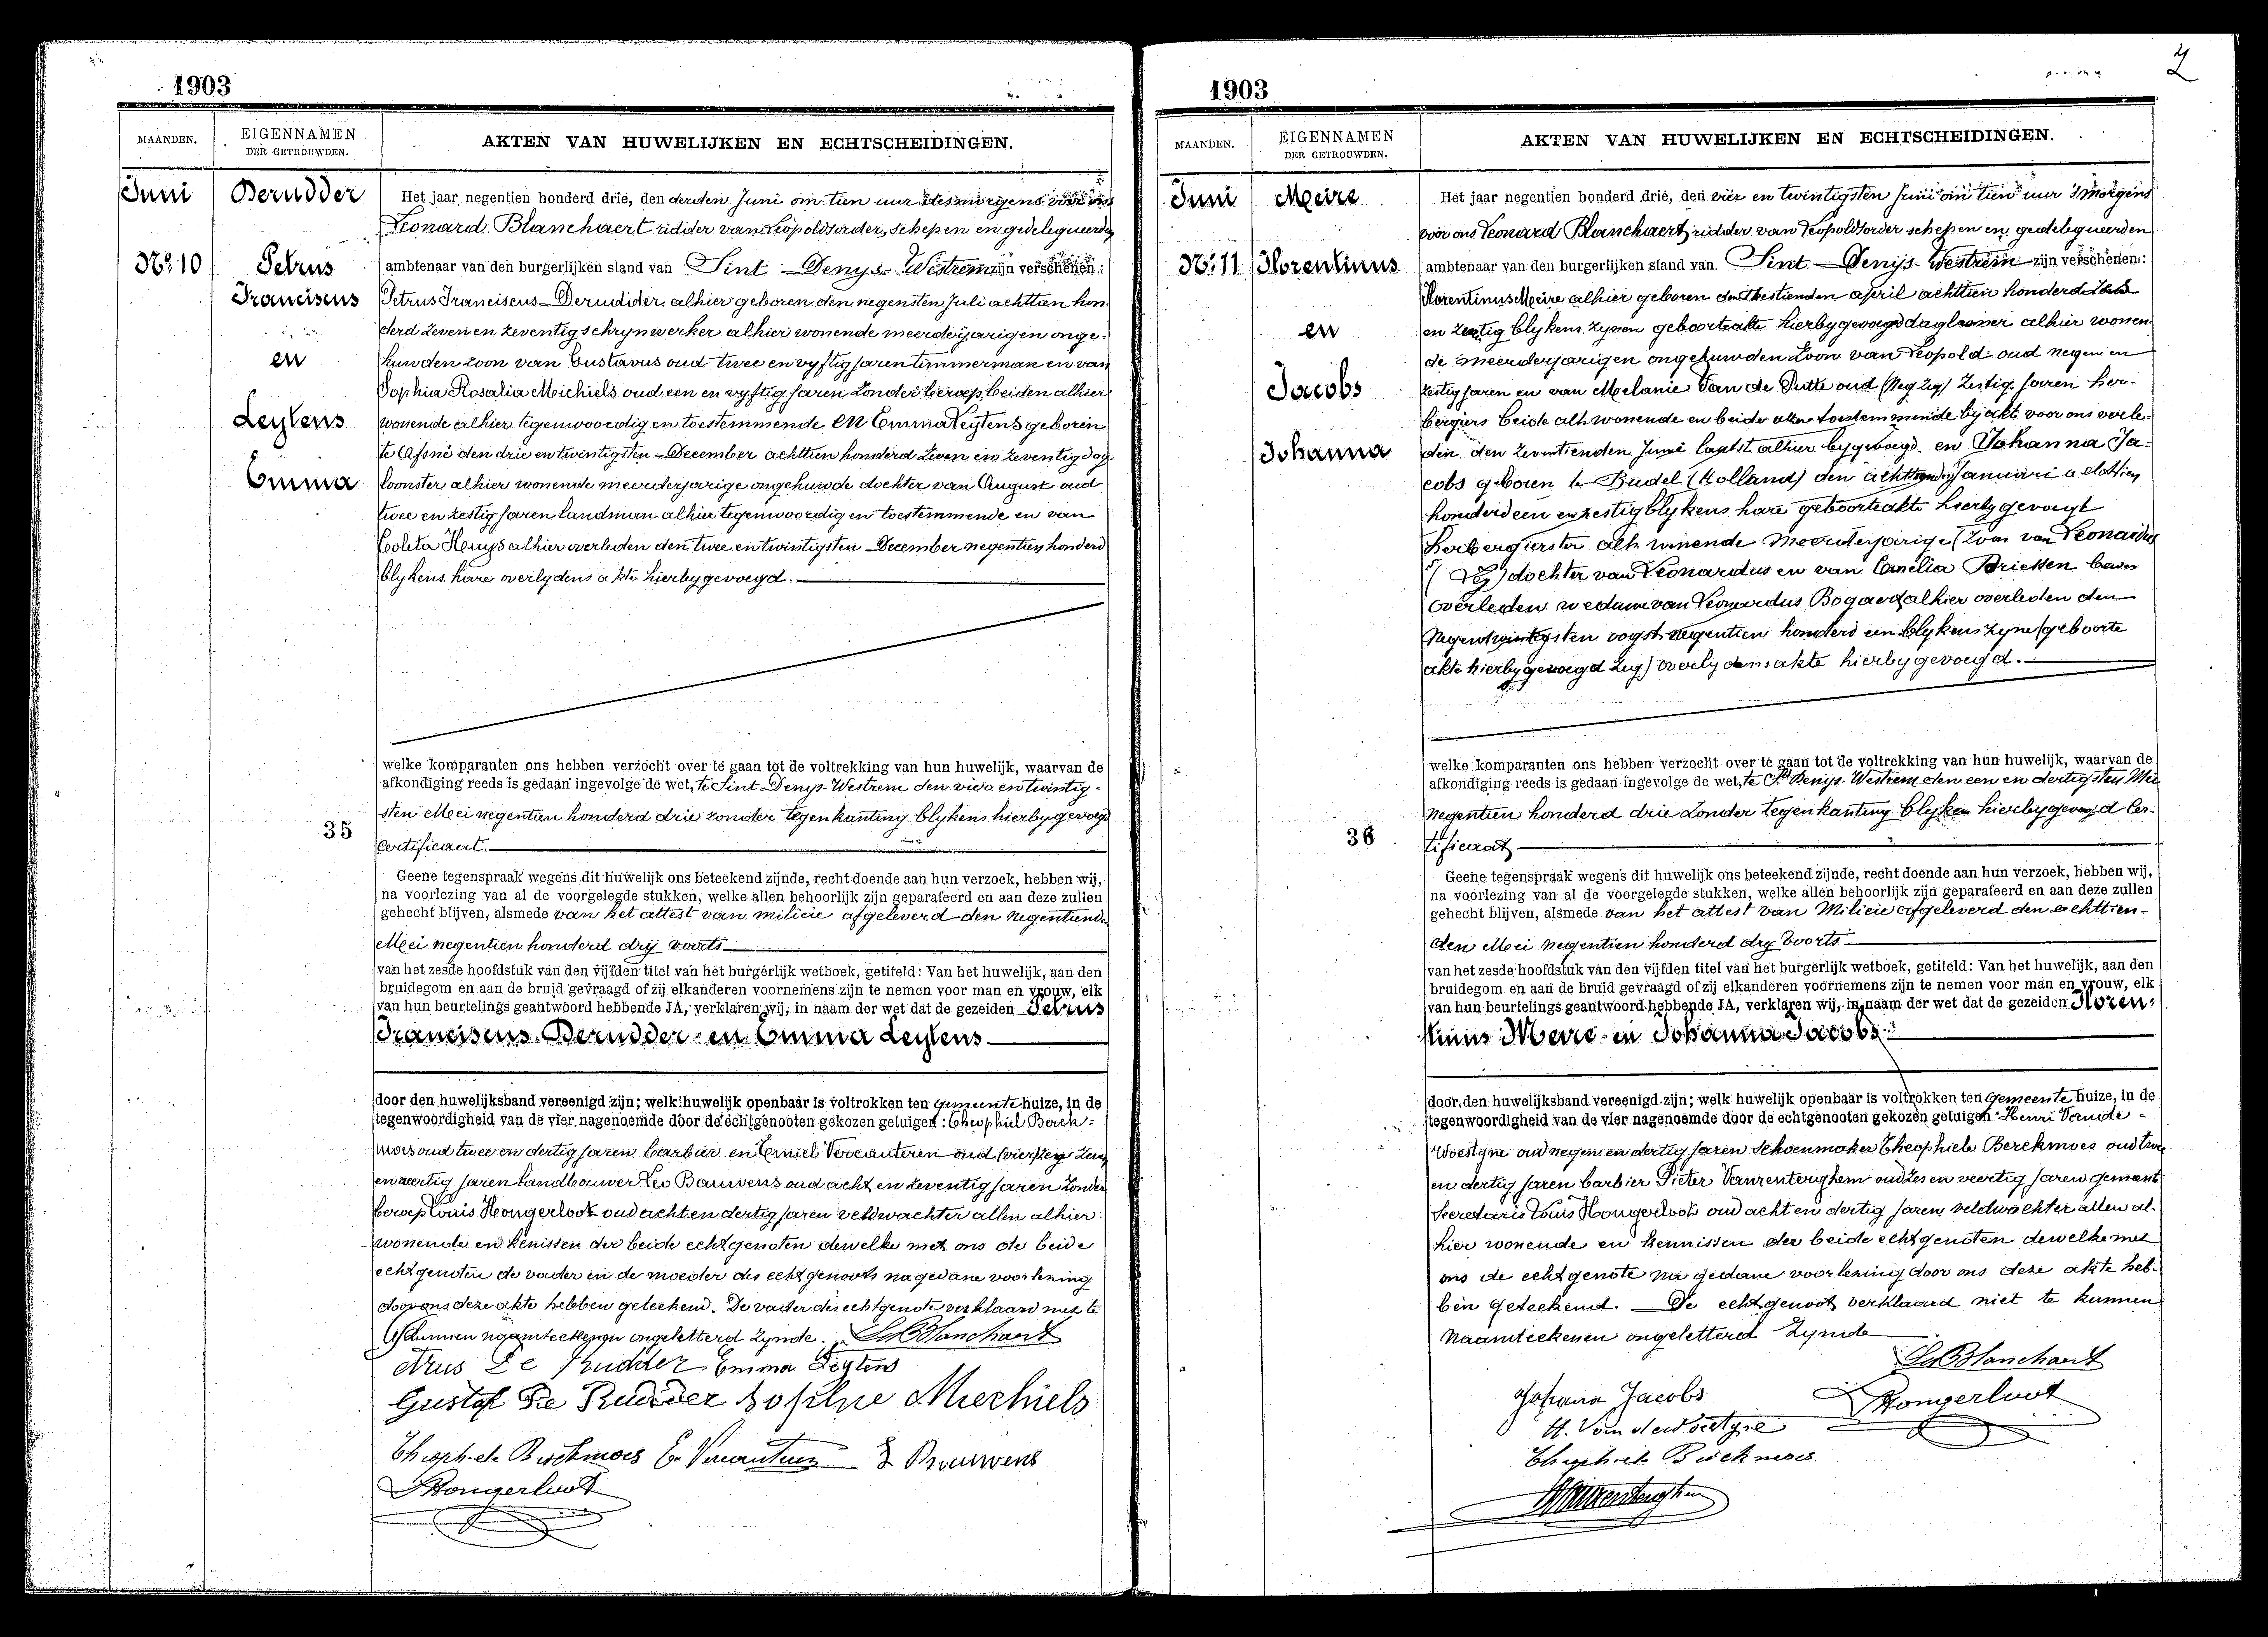 1903
MAANDEN.
EIGENNAMEN
DER GETROUWDEN.
AKTEN VAN HUWELIJKEN EN ECHTSCHEIDINGEN.
Juni
Derudder
No. 10
Petrus
Franciscus
en
Leytens
Emma
Het jaar negentien honderd drie, den derden Juni om tien uur des morgens voor ons
Leonard Blanchaert ridder van Leopoldsorder, schepen en gedelegueerden
ambtenaar van den burgerlijken stand van Sint Denys-Westrem zijn verschenen:
Petrus Franciscus Derudder alhier geboren den negensten Juli achttien hon-
derd zeven en zeventig schrynwerker alhier wonende meerderjarigen onge-
huwden zoon van Gustavus oud twee en vyftig jaren timmerman en van
Sophia Rosalia Michiels oud een en vyftig jaren zonder beroep, beiden alhier
wonende alhier tegenwoordig en toestemmende, en Emma Leytens geboren
te Afsné den drie en twintigsten December achttien honderd zeven en zeventig dag-
loonster alhier wonende meerderjarige ongehuwde dochter van August oud
twee en zestig jaren landman alhier tegenwoordig en toestemmende en van
Coleta Huys alhier overleden den twee en twintigsten December negentien honderd
blykens hare overlydens akte hierby gevoegd.
welke komparanten ons hebben verzocht over te gaan tot de voltrekking van hun huwelijk, waarvan de
afkondiging reeds is gedaan ingevolge de wet, te Sint Denys-Westrem den vier en twintig-
sten Mei negentien honderd drie zonder tegenkanting blykens hierby gevoegd
35
certificaat.
Geene tegenspraak wegens dit huwelijk ons beteekend zijnde, recht doende aan hun verzoek, hebben wij,
na voorlezing van al de voorgelegde stukken, welke allen behoorlijk zijn geparafeerd en aan deze zullen
gehecht blijven, alsmede van het attest van milicie afgeleverd den negentienden
Mei negentien honderd dry voorts
van het zesde hoofdstuk van den vijfden titel van het burgerlijk wetboek, getiteld: Van het huwelijk, aan den
bruidegom en aan de bruid gevraagd of zij elkanderen voornemens zijn te nemen voor man en vrouw, elk
van hun beurtelings geantwoord hebbende JA, verklaren wij, in naam der wet dat de gezeiden Petrus
Franciscus Derudder en Emma Leytens
door den huwelijksband vereenigd zijn; welk huwelijk openbaar is voltrokken ten Gemeentehuize, in de
tegenwoordigheid van de vier nagenoemde door de echtgenooten gekozen getuigen: Theophiel Berck-
moes oud twee en dertig jaren barbier en Emiel Vercauteren oud
en veertig jaren landbouwer Leo Bauwens oud acht en zeventig jaren zonder
beroep Louis Hongerloot oud acht en dertig jaren veldwachter allen alhier
wonende en kenissen der beide echtgenoten dewelke met ons de beide
echtgenoten de vader en de moeder des echtgenoots na gedane voorlezing
door ons deze akte hebben geteekend. De vader der echtgenote verklaard niet te
kunnen naamteekenen ongeletterd zynde. L. Blanchaert
De Rudder Emma Leytens
Gustaf De Rudder Sophie Miechiels
Theophile Berckmoes E. Vercauteren L Bauwens
Hongerloot
1903
2
MAANDEN.
EIGENNAMEN
DER GETROUWDEN.
AKTEN VAN HUWELIJKEN EN ECHTSCHEIDINGEN.
Juni
Meire
No. 11
Florentinus
en
Jacobs
Johanna
Het jaar negentien honderd drie, den vier en twintigsten Juni om tien uur 's morgens
voor ons Leonard Blanchaert ridder van Leopoldsorder schepen en gedelegueerden
ambtenaar van den burgerlijken stand van Sint Denijs-Westrem zijn verschenen:
Florentinus Meire alhier geboren den zestienden april achttien honderd
en zestig blykens zynen geboorteakte hierby gevoegd daglooner alhier wonen-
de meerderjarigen ongehuwden zoon van Leopold oud negen en
zestig jaren en van Melanie Van de Putte oud zestig jaren her-
bergiers beide alh. wonende en beide toestemmende by akt voor ons verle-
den den zeventienden Juni laatst alhier bygevoegd en Johanna Ja-
cobs geboren te Budel (Holland) den Januari achttien
honderd een en zestig blykens hare geboorteakte hierby gevoegd
herbergierster alh. wonende meerderjarige (zoon van Leonardus
(Zeg) dochter van Leonardus en van Cornelia Driessen beiden
overleden weduwe van Leonardus Bogaerd alhier overleden den
oogst negentien honderd een blykens zyne (geboorte
akte hierby gevoegd zeg) overlydens akte hierby gevoegd.
welke komparanten ons hebben verzocht over te gaan tot de voltrekking van hun huwelijk, waarvan de
afkondiging reeds is gedaan ingevolge de wet, te St Denys-Westrem den een en dertigsten Mei
negentien honderd drie zonder tegenkanting blykens hierby gevoegd cer-
36
tificaat
Geene tegenspraak wegens dit huwelijk ons beteekend zijnde, recht doende aan hun verzoek, hebben wij,
na voorlezing van al de voorgelegde stukken, welke allen behoorlijk zijn geparafeerd en aan deze zullen
gehecht blijven, alsmede van het attest van Milicie afgeleverd den achttien-
den Mei negentien honderd dry voorts
van het zesde hoofdstuk van den vijfden titel van het burgerlijk wetboek, getiteld: Van het huwelijk, aan den
bruidegom en aan de bruid gevraagd of zij elkanderen voornemens zijn te nemen voor man en vrouw, elk
van hun beurtelings geantwoord hebbende JA, verklaren wij, in naam der wet dat de gezeiden Floren-
tinus Meire en Johanna Jacobs
door den huwelijksband vereenigd zijn; welk huwelijk openbaar is voltrokken ten Gemeentehuize, in de
tegenwoordigheid van de vier nagenoemde door de echtgenooten gekozen getuigen Henri Vande-
Woestyne oud negen en dertig jaren schoenmaker Theophiele Berckmoes oud twee
en dertig jaren barbier Pieter Vanrenterghem oud zes en veertig jaren gemeente
secretaris Louis Hongerloot oud acht en dertig jaren veldwachter allen al-
hier wonende en kennissen der beide echtgenoten dewelke met
ons de echtgenote na gedane voorlezing door ons deze akte heb-
ben geteekend. De echtgenoot verklaard niet te kunnen
naamteekenen ongeletterd zynde
L. Blanchaert
Johana Jacobs Hongerloot
H. Van de Woestyne
Theophiele Berckmoes